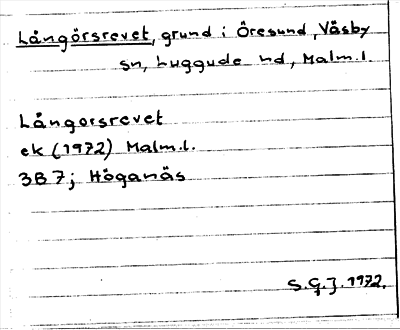 Långörsrevet, grund i Öresund, Väsby
sn, Luggude hd, Malm.l.
Långörsrevet
ek (1972) Malm.l.
3B7; Höganäs
S.G.J. 1972.